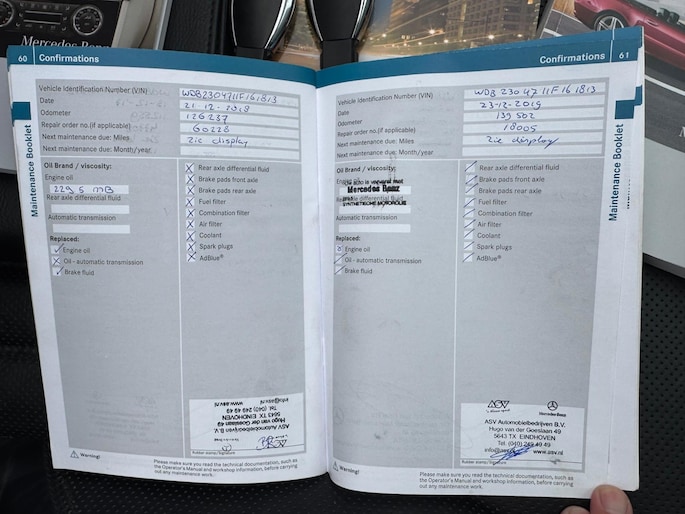 Mercedes-Benz
60 Confirmations
Vehicle Identification Number (VIN) WDB2304711F161813
Date 21-12-2018
Odometer 126237
Repair order no.(if applicable) 60228
Next maintenance due: Miles zie display
Next maintenance due: Month/year
Oil Brand / viscosity:
Engine oil
229.5 MB
Rear axle differential fluid
Automatic transmission
Replaced:
Engine oil
Oil - automatic transmission
Brake fluid
Rear axle differential fluid
Brake pads front axle
Brake pads rear axle
Fuel filter
Combination filter
Air filter
Coolant
Spark plugs
AdBlue®
ASV
ASV Automobielbedrijven B.V.
Hugo van der Goeslaan 49
5643 TX EINDHOVEN
Tel. (040) 249 49 49
info@asv.nl www.asv.nl
Rubber stamp/Signature
Warning!
Please make sure you read the technical documentation, such as
the Operator's Manual and workshop information, before carrying
out any maintenance work.
Maintenance Booklet
Confirmations 61
Vehicle Identification Number (VIN) WDB2304711F161813
Date 23-12-2019
Odometer 139502
Repair order no.(if applicable) 18005
Next maintenance due: Miles zie display
Next maintenance due: Month/year
Oil Brand / viscosity:
Mercedes Benz
SYNTHETISCHE MOTOROLIE
Automatic transmission
Replaced:
Engine oil
Oil - automatic transmission
Brake fluid
Rear axle differential fluid
Brake pads front axle
Brake pads rear axle
Fuel filter
Combination filter
Air filter
Coolant
Spark plugs
AdBlue®
ASV
Mercedes-Benz
ASV Automobielbedrijven B.V.
Hugo van der Goeslaan 49
5643 TX EINDHOVEN
Tel. (040) 249 49 49
www.asv.nl
Rubber stamp/Signature
Warning!
Please make sure you read the technical documentation, such as
the Operator's Manual and workshop information, before carrying
out any maintenance work.
Maintenance Booklet